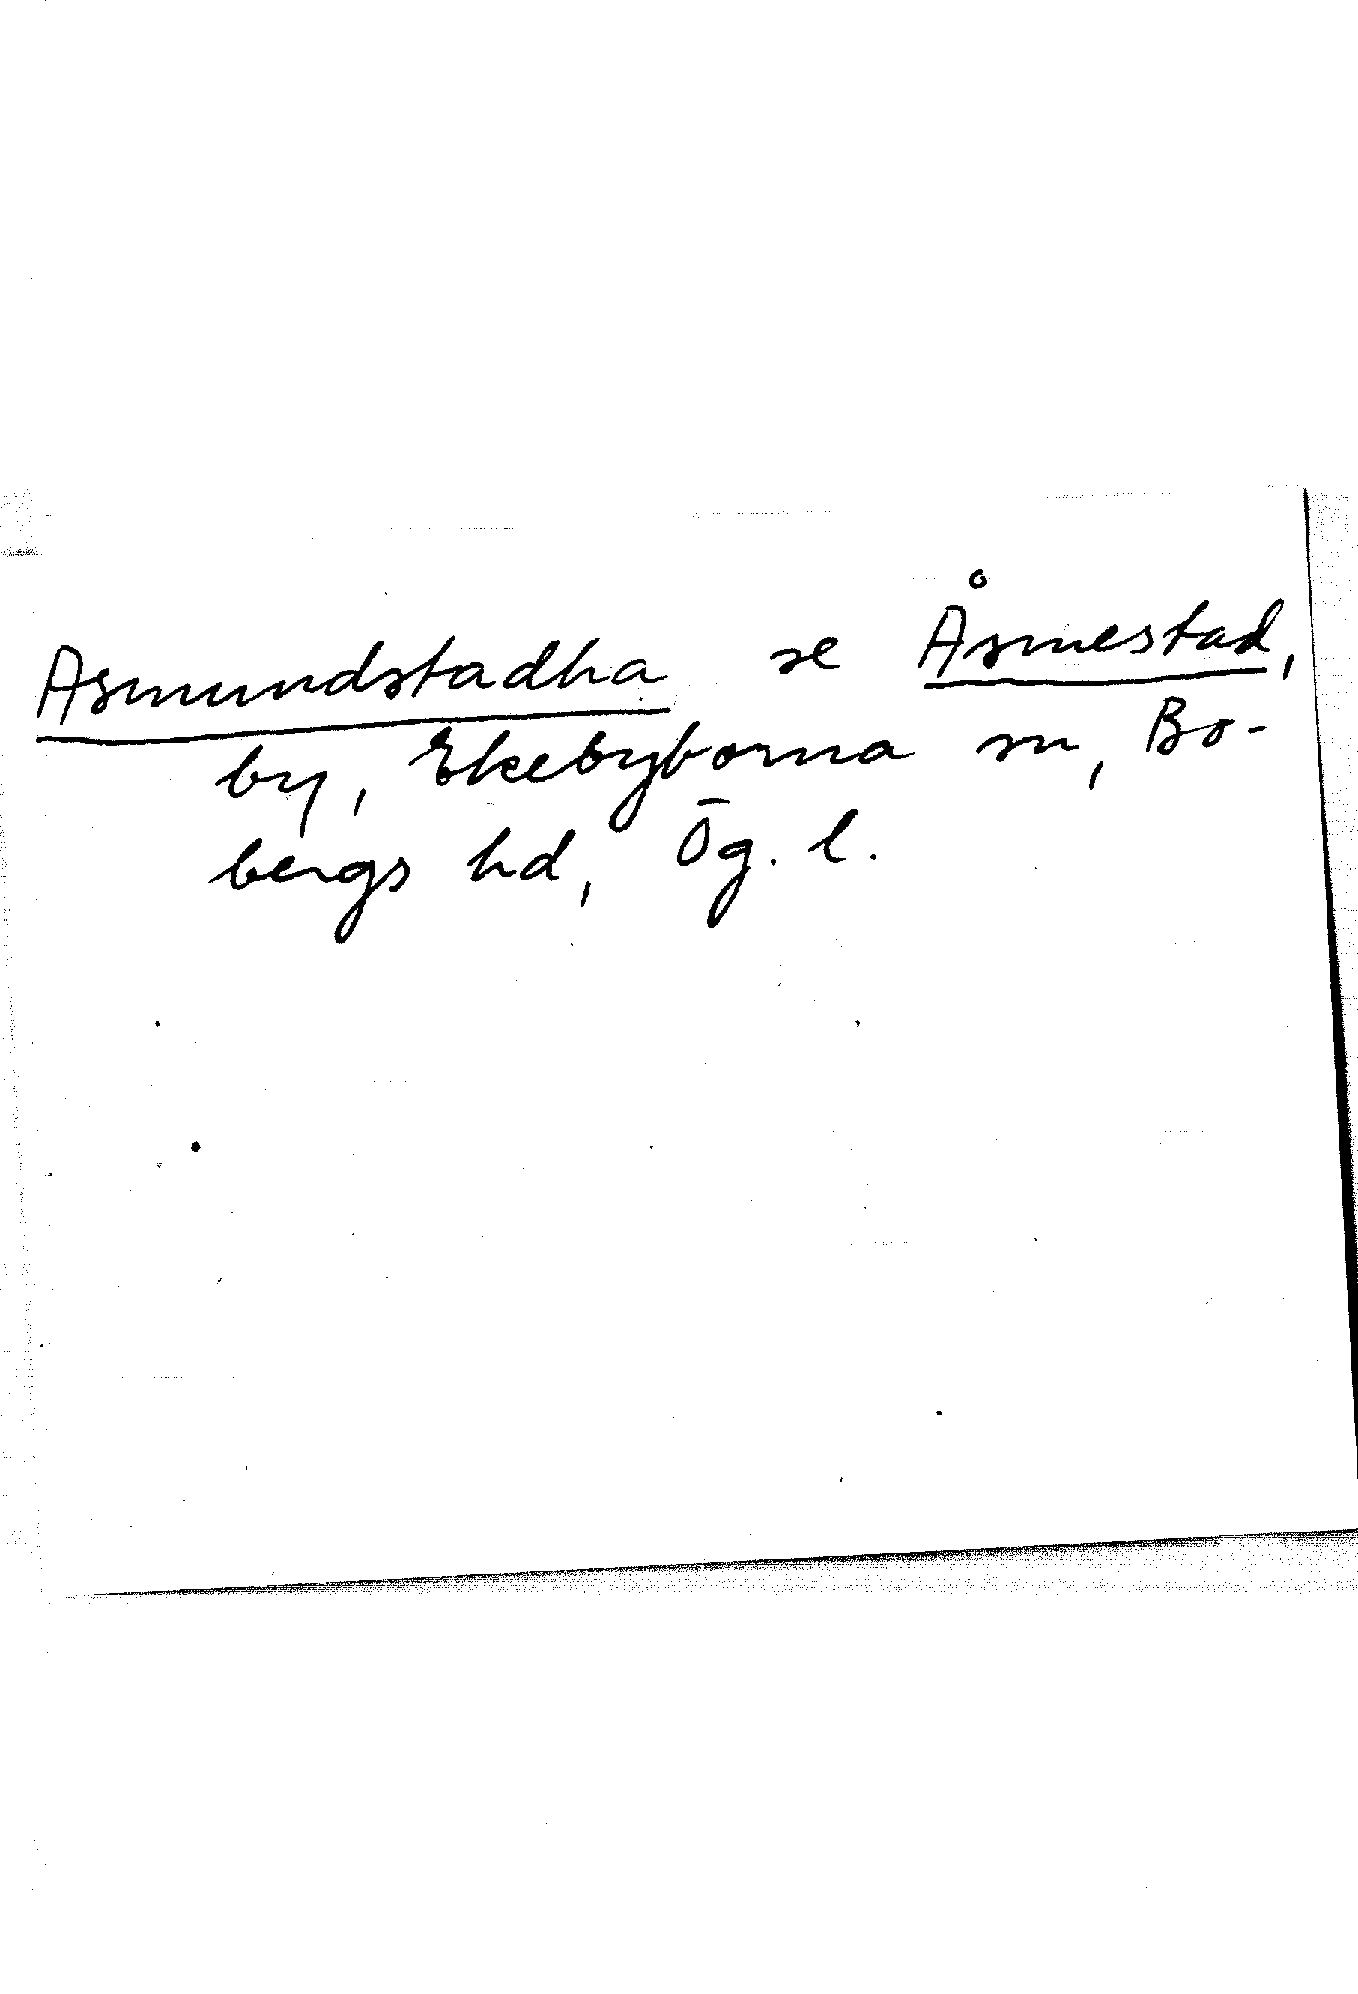 Asmundstadha se Åsmestad,
by, Ekebyborna sn, Bo-
bergs hd, Ög. l.